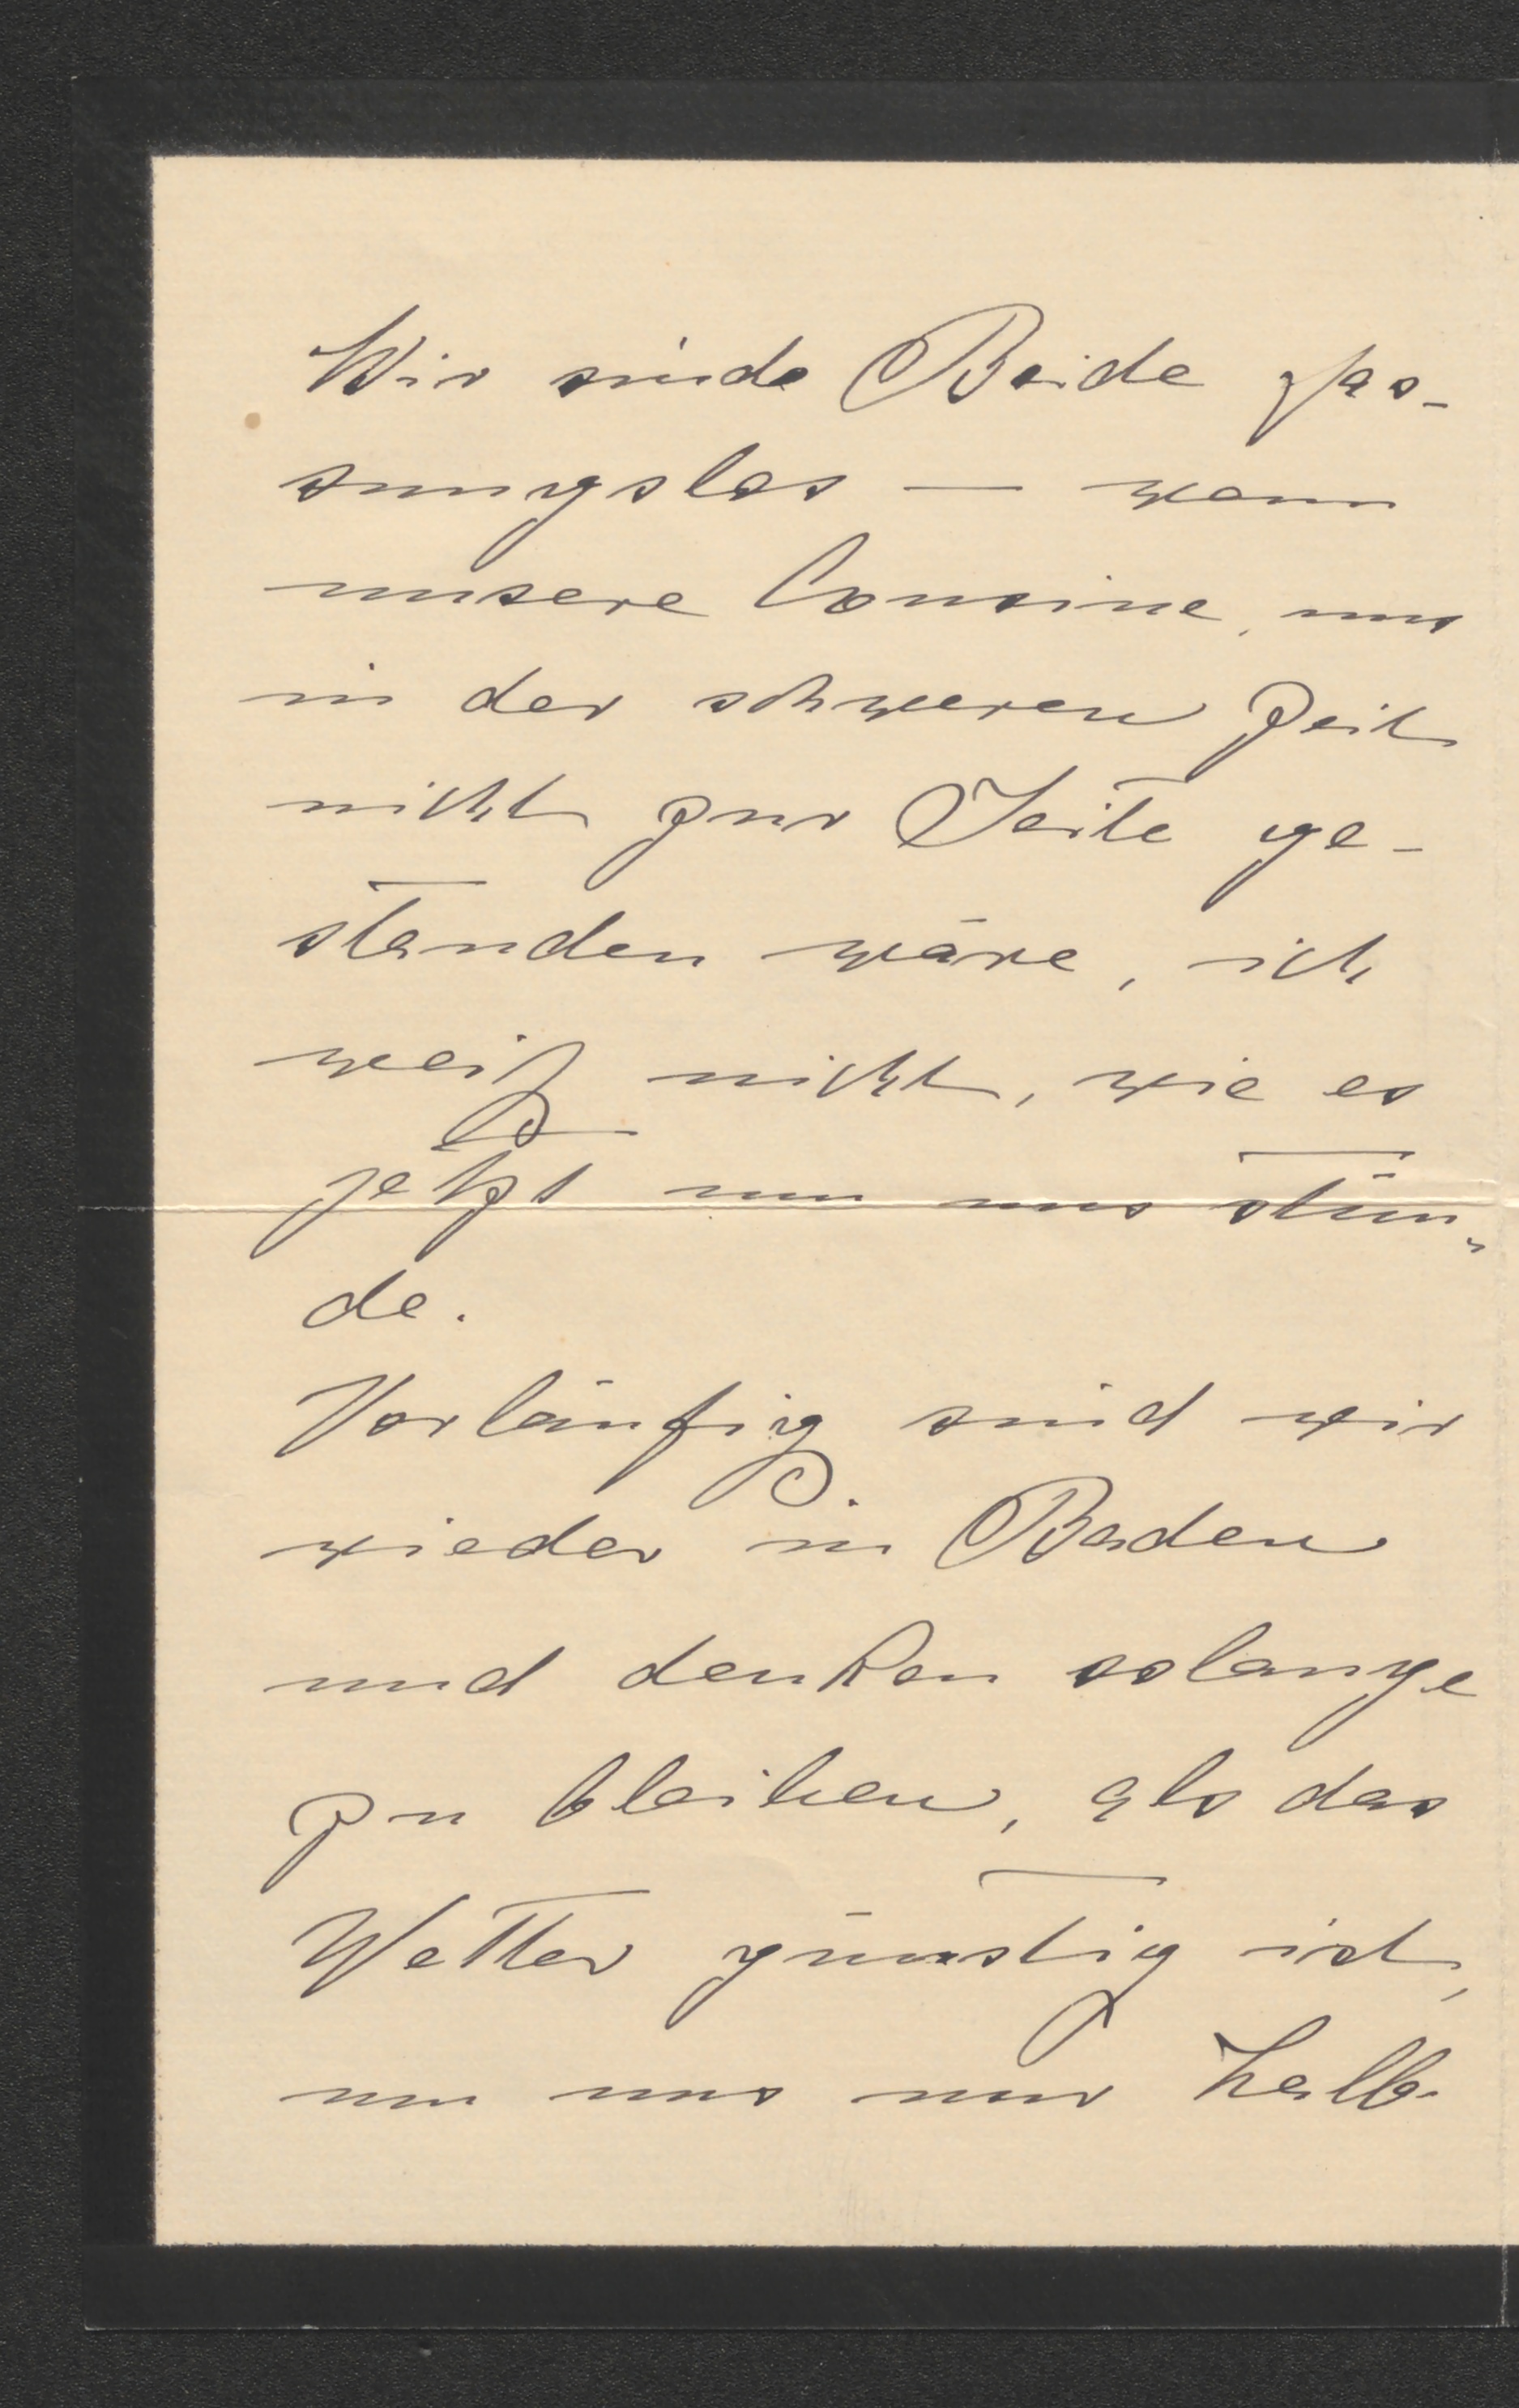 Wir sind Beide fas-
sungslos — wenn
unsere Cousine, uns
in der schweren Zeit
nicht zur Seite ge-
standen wäre, ich
weiß nicht, wie es
jetzt um uns stün-
de.
Vorläufig sind wir
wieder in Baden
und denken solange
zu bleiben, als das
Wetter günstig ist,
um uns nur halb-